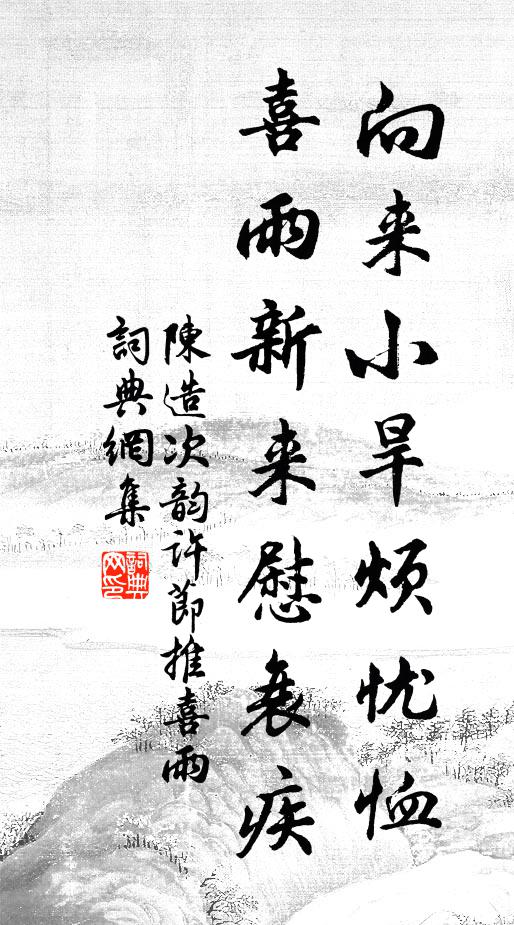 向来小旱烦忧恤
喜雨新来慰衰疾
陳造次韵许節推喜雨
詞典網集
詞典
网印